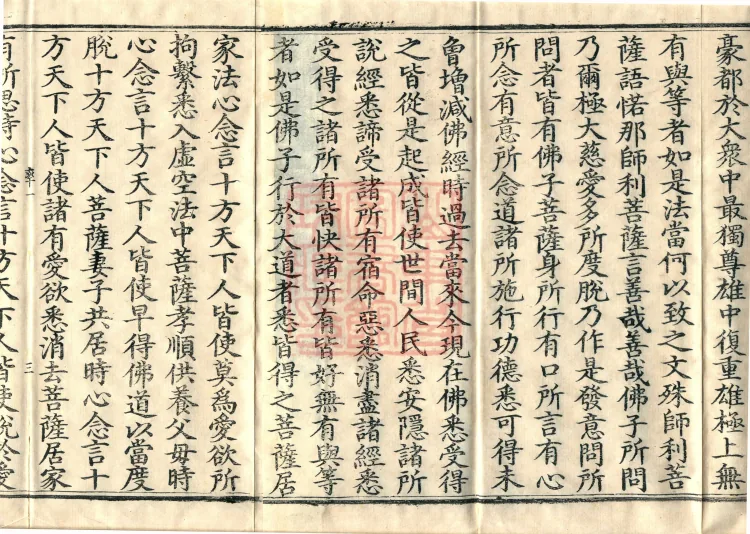 豪都於大衆中最獨尊雄中復重雄極上無
有與等者如是法當何以致之文殊師利菩
薩語惒那師利菩薩言善哉善哉佛子所問
乃爾極大慈愛多所度脫乃作是發意問所
問者皆有佛子菩薩身所行有口所言有心
所念有意所念道諸所施行功德悉可得未
曾增減佛經時過去當來今現在佛悉受得
之皆從是起成皆使世間人民悉安隱諸所
說經悉諦受諸所有宿命惡悉消盡諸經悉
受得之諸所有皆快諸所有皆好無有與等
者如是佛子行於大道者悉皆得之菩薩居
家法心念言十方天下人皆使莫爲愛欲所
拘繫悉入虛空法中菩薩孝順供養父母時
心念言十方天下人皆使早得佛道以當度
脫十方天下人菩薩妻子共居時心念言十
率一
三
方天下人皆使諸有愛欲悉消去菩薩居家
有所思時心念言十方天下人皆使脫於愛